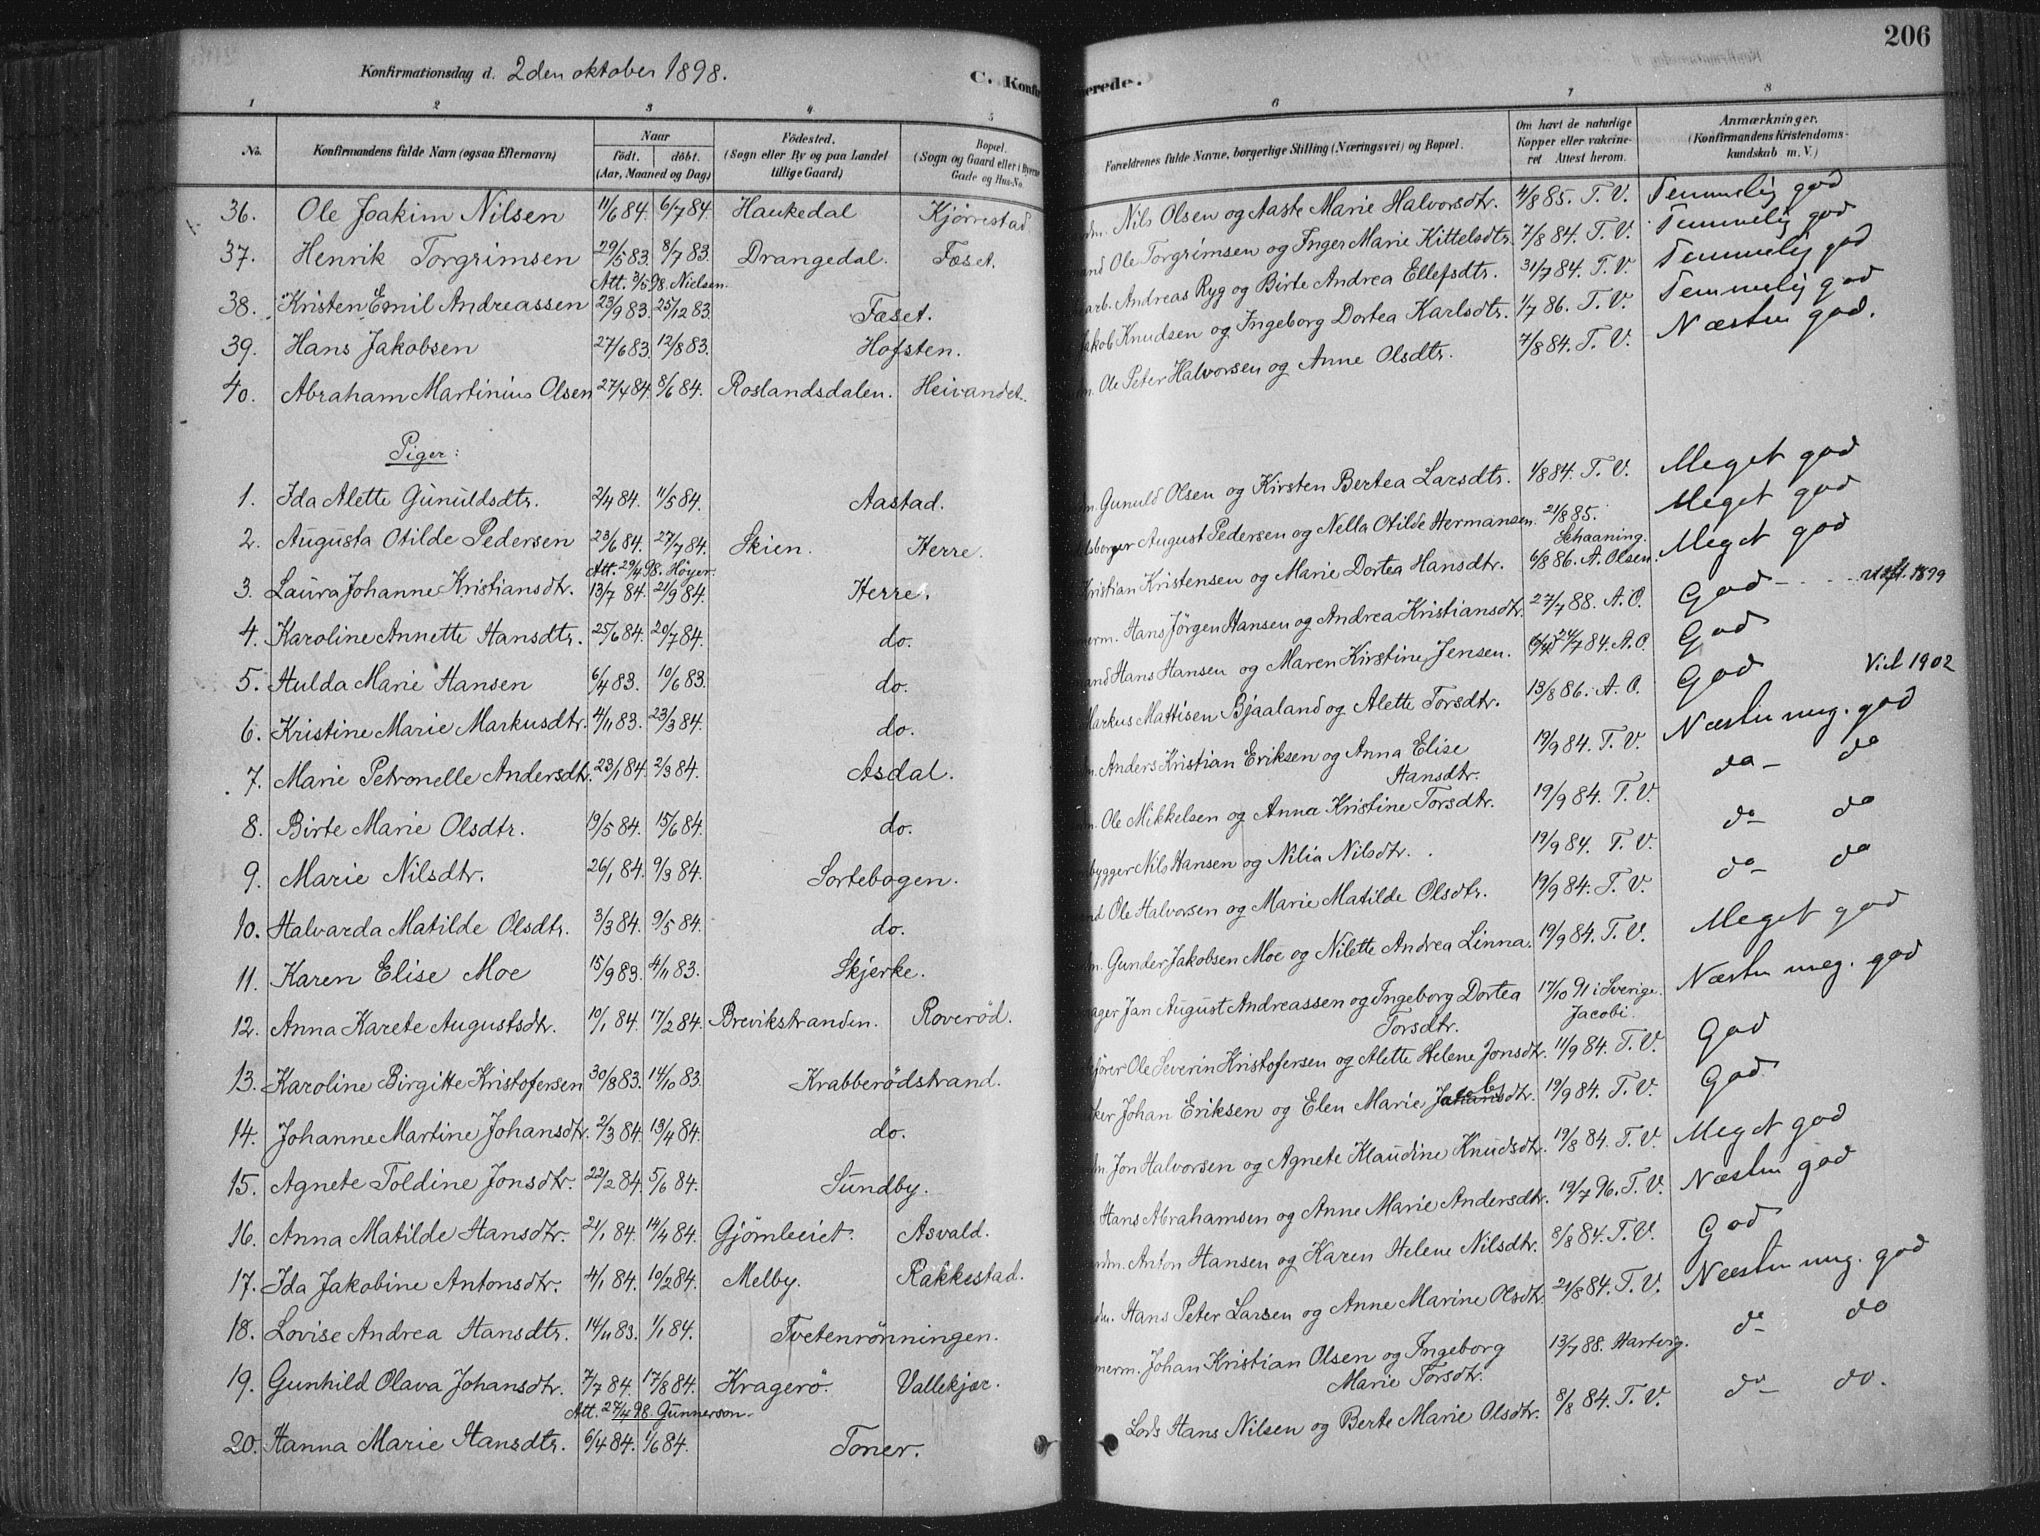 206
Konfirmationsdag d. 2den oktober 1898.
C. Konfir
erede.
1 2 3 4 5 6 7 8
No. Konfirmandens fulde Navn (ogsaa Efternavn) Naar født. døbt. (Aar, Maaned og Dag) Fødested. (Sogn eller By og paa Landet tillige Gaard) Bopæl. (Sogn og Gaard eller i Byerne Gade og Hus-No. Forældrenes fulde Navne, borgerlige Stilling (Næringsvei) og Bopæl. Om havt de naturlige Kopper eller vakcineret Attest herom. Anmærkninger. (Konfirmandens Kristendomskundskab m. V.)
36. Ole Joakim Nilsen 11/6 84. 6/7 84. Haukedal Kjørrestad Nils Olsen og Aaste Marie Halvorsdtr. 4/8 85. T. V. Temmelig god
37. Henrik Torgrimsen 29/5 83. 8/7 83. Drangedal. Fæset. Ole Torgrimsen og Inger Marie Kittelsdtr. 7/8 84. T. V. Temmelig god
Att. 3/5 98. Nielsen.
38. Kristen Emil Andreassen 23/9 83. 25/12 83. Fæset. arb. Andreas Ryg og Birte Andrea Ellefsdtr. 31/7 84. T. V. Temmelig god
39. Hans Jakobsen 27/6 83. 12/8 83. Hofsten. Jakob Knudsen og Ingeborg Dortea Karlsdtr. 1/7 86. T. V. Temmelig god
40. Abraham Martinius Olsen 27/4 84. 8/6 84. Roslandsdalen. Heivandet. Ole Peter Halvorsen og Anne Olsdtr. 7/8 84. T. V. Næsten god.
Piger:
1. Ida Alette Gunuldsdtr. 2/4 84. 11/5 84. Aastad. Gunuld Olsen og Kirsten Bertea Larsdtr. 1/8 84. T. V. Meget god
2. Augusta Otilde Pedersen 23/6 84. 27/7 84. Skien. Herre. August Pedersen og Nella Otilde Hermansen. 21/8 85. Schaaning. Meget god
Att. 29/4 98. Höyer.
3. Laura Johanne Kristiansdtr. 13/7 84. 21/9 84. Herre. Kristian Kristensen og Marie Dortea Hansdtr. 6/8 86. A. Olsen. Meget god
4. Karoline Annette Hansdtr. 25/6 84. 20/7 84. do. Hans Jörgen Hansen og Andrea Kristiansdtr. 27/7 88. A. O. God 1899
5. Hulda Marie Hansen 6/4 83. 10/6 83. do. Hans Hansen og Maren Kirstine Jensen. 24/7 84. A. O. God
6. Kristine Marie Markusdtr. 4/11 83. 23/3 84. do. Markus Mattisen Bjaaland og Alette Torsdtr. 13/8 86. A. O. God Vid 1902
7. Marie Petronelle Andersdtr. 23/1 84. 2/3 84. Asdal. Anders Kristian Eriksen og Anna Elise Hansdtr. 19/9 84. T. V. Næsten meg. god
8. Birte Marie Olsdtr. 19/5 84. 15/6 84. do. Ole Mikkelsen og Anna Kristine Torsdtr. 19/9 84. T. V. do do
9. Marie Nilsdtr. 26/1 84. 9/3 84. Sortebogen. bygger Nils Hansen og Nilia Nilsdtr. 19/9 84. T. V. do do
10. Halvarda Matilde Olsdtr. 3/3 84. 9/5 84. do. Ole Halvorsen og Marie Matilde Olsdtr. 19/9 84. T. V. do do
11. Karen Elise Moe 15/9 83. 4/11 83. Skjerke. Gunder Jakobsen Moe og Nilette Andrea Linna. 19/9 84. T. V. Meget god
12. Anna Karete Augustsdtr. 10/1 84. 17/2 84. Brevikstranden. Roveröd. Jan August Andreassen og Ingeborg Dortea Torsdtr. 17/10 91 i Sverige. Jacobi. Næsten meg. god
13. Karoline Birgitte Kristofersen 30/8 83. 14/10 83. Krabberödstrand. Ole Severin Kristofersen og Alette Helene Jonsdtr. 11/9 84. T. V. God
14. Johanne Martine Johansdtr. 2/3 84. 13/4 84. do. Johan Eriksen og Elen Marie Jakobsdtr. 19/9 84. T. V. God
15. Agnete Toldine Jonsdtr. 22/2 84. 5/6 84. Sundby. Jon Halvorsen og Agnete Klaudine Knudsdtr. 19/8 84. T. V. Meget god
16. Anna Matilde Hansdtr. 21/1 84. 14/4 84. Gjömleiet. Asvald. Hans Abrahamsen og Anne Marie Andersdtr. 19/7 96. T. V. Næsten god
17. Ida Jakobine Antonsdtr. 4/1 84. 10/2 84. Melby. Rakkestad. Anton Hansen og Karen Helene Nilsdtr. 8/8 84. T. V. God
18. Lovise Andrea Hansdtr. 14/11 83. 1/1 84. Tvetenrönningen. Hans Peter Larsen og Anne Marine Olsdtr. 21/8 84. T. V. Næsten meg. god
19. Gunhild Olava Johansdtr. 7/7 84. 17/8 84. Kragerö. Vallekjær. Johan Kristian Olsen og Ingeborg Marie Torsdtr. 13/7 88. Hartvig. do do
Att. 27/4 98. Gunnerson.
20. Hanna Marie Hansdtr. 6/4 84. 1/6 84. Toner. Lods Hans Nilsen og Berte Marie Olsdtr. 8/8 84. T. V. do do.